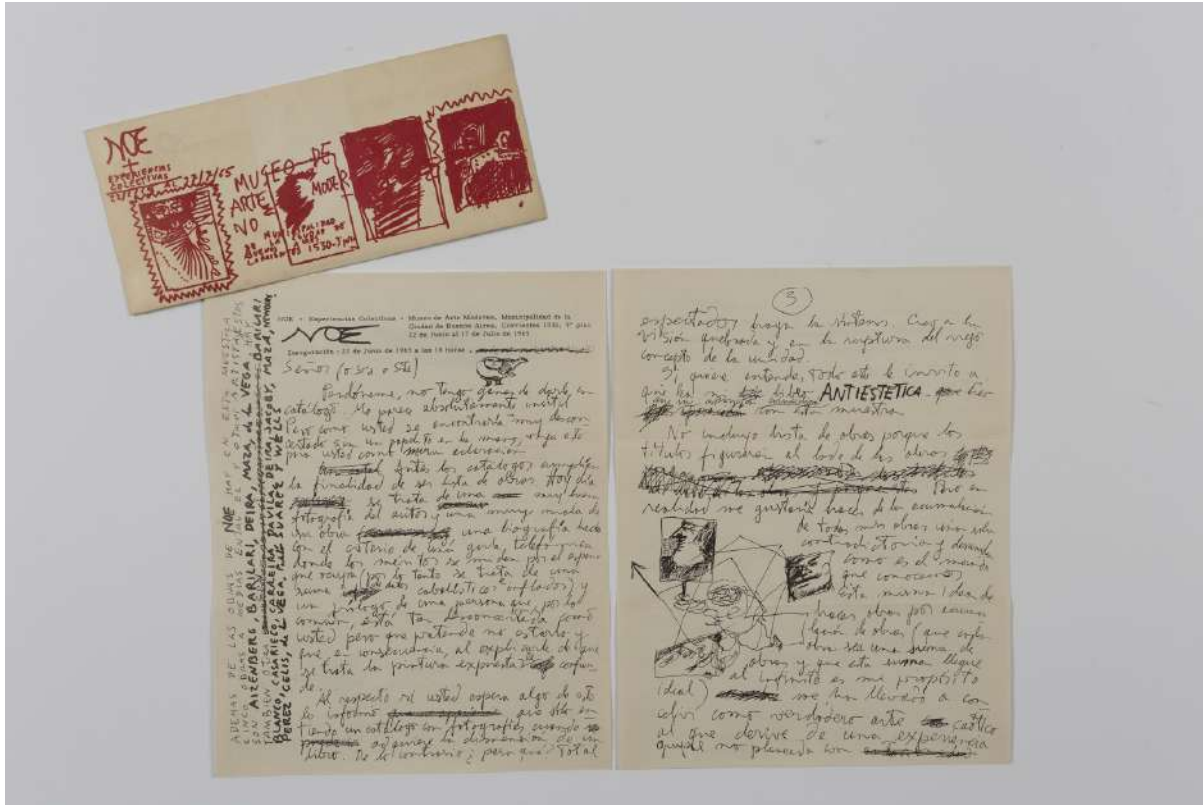 NOE
+
EXPERIENCIAS
COLECTIVAS
AL 22/7/65
MUSEO DE
ARTE MODER
NO
MUNICIPALIDAD
DE LA CIUDAD DE
BUENOS AIRES
CORRIENTES 1530-
ADEMAS DE LAS OBRAS DE NOE HAY EN ESTA MUESTRA
CINCO OBRAS HECHAS EN
SON AIZENBERG, BARILARI, DEIRA, MAZA, de la VEGA, HAY
TAMBIEN OTRA
BLANCO, CASARIEGO, CARREIRA, DAVILA, DEIRA, JACOBY, MAZA, NEWBERY
PEREZ CELIS, de la VEGA, SUAREZ Y WELLS
NOE - Experiencias Colectivas - Museo de Arte Moderno, Municipalidad de la
Ciudad de Buenos Aires, Corrientes 1530, 9° piso
22 de Junio al 17 de Julio de 1965
NOE
Inauguración - 22 de Junio de 1965 a las 19 horas
Señor (o sra o sta)
Perdóneme, no tengo ganas de darle un
catálogo. Me parece absolutamente inútil
Pero como usted se encontraría muy descon
certado sin un papelito en la mano, vaya este
para usted como mera aclaración
Antes los catálogos cumplían
la finalidad de ser lista de obras. Hoy día
se trata de una muy buena
fotografía del autor, una muy mala de
una obra una biografía hecha
con el criterio de una guía telefónica
donde los méritos se miden por el espacio
que ocupa (por lo tanto se trata de una
suma de cabalísticos inflados) y
un prólogo de una persona que por lo
común, está tan desconcertada como
usted pero que pretende no estarlo y
que en consecuencia, al explicarle de que
se trata la pintura expuesta confun
de.
Al respecto si usted espera algo de esto
le informo que sólo en
tiendo un catálogo con fotografías cuando
adquiere la dimensión de un
libro. De lo contrario ¿para qué? Total
3
espectador haga la síntesis. Creo a la
visión quebrada y en la ruptura del viejo
concepto de la unidad.
Si quiere entender todo esto le invito a
que lea mi libro ANTIESTETICA que
con esta muestra
No incluyo lista de obras porque los
títulos figuran al lado de las obras
Pero en
realidad me gustaría hacer de la acumulación
de todas mis obras una sola
contradictoria y
como es el mundo
que conocemos
Esta misma idea de
hacer obras por acumu
lación de obras (que cada
obra sea una suma de
obras y que esta suma llegue
al infinito es mi propósito
ideal) me han llevado a con
cebir como verdadero arte caótico
al que derive de una experiencia
grupal no planeada con